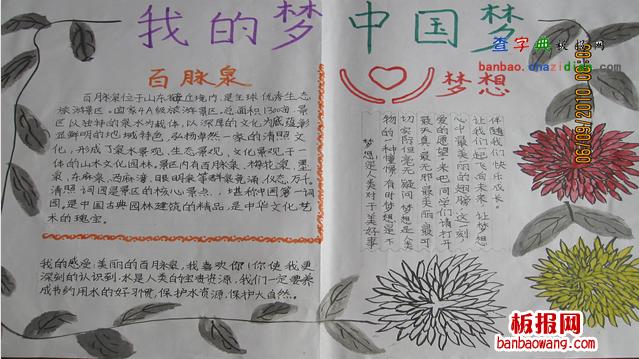 我的梦 中国梦
查字典 板报网
banbao.chazidian.com
百脉泉
百脉泉位于山东境内,是全球优秀生态
旅游景区。国家4A级旅游景区。总面积1300亩景
区以独特的泉水为载体,以深厚的文化为底蕴
显鲜明的地域特色,弘扬卓然一家的清照文
化,形成了泉水景观、生态景观、文化景观于一
体的山水文化园林。景区内有百脉泉、梅花泉、墨
泉、东麻湾、西麻湾、眼明泉等群泉竞涌,仪态万千。
清照词园是景区的核心景点,堪称中国第一词
园。是中国古典园林建筑的精品,是中华文化艺
术的瑰宝。
我的感受:美丽的百脉泉,我喜欢你!你使我更
深刻的认识到,水是人类的宝贵资源,我们一定要养
成书约用水的好习惯,保护水资源,保护大自然。
梦想
梦想是人类对于美好事
物的一种憧憬有时梦想是不
切实际但毫无疑问梦想是人类
最天真最无邪最美丽最可
爱的愿望来吧同学们请打开
心中最美丽的翅膀这一刻
让我们起飞向未来让梦想
伴随我们快乐成长。
06/09/2010
板报网
banbaowang.com